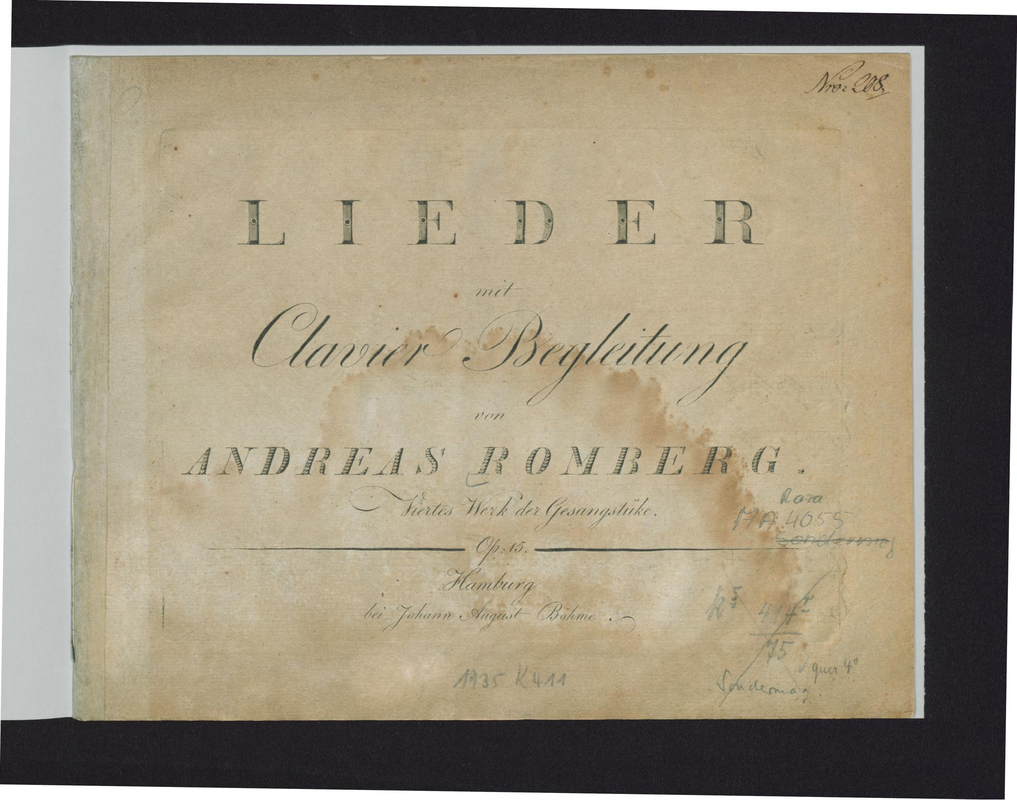 Nro: 208.
LIEDER
mit
Clavier Begleitung
von
ANDREAS ROMBERG.
Viertes Werk der Gesangstüke.
Rara
4055
Op: 15.
Hamburg
bei Johann August Böhme.
75
quer 4°
1935 K 411